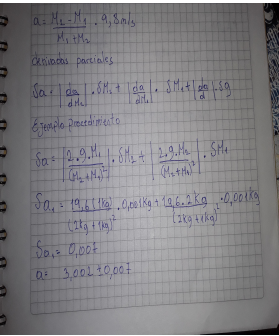 a = M₂ - M₁ / M₁ + M₂ · 9,8 m/s
derivadas parciales
δa = |da/dM₂| · δM₂ + |da/dM₁| · δM₁ + |da/d| δg
Ejemplo procedimiento
δa = |2·g·M₁/(M₂+M₁)²| · δM₂ + |2·g·M₂/(M₂+M₁)²| · δM₁
δa₁ = 19,6(1kg)/(2kg+1kg)² · 0,001kg + 19,6·2kg/(2kg+1kg)² · 0,001kg
δa₁ = 0,007
a = 3,002 ± 0,007